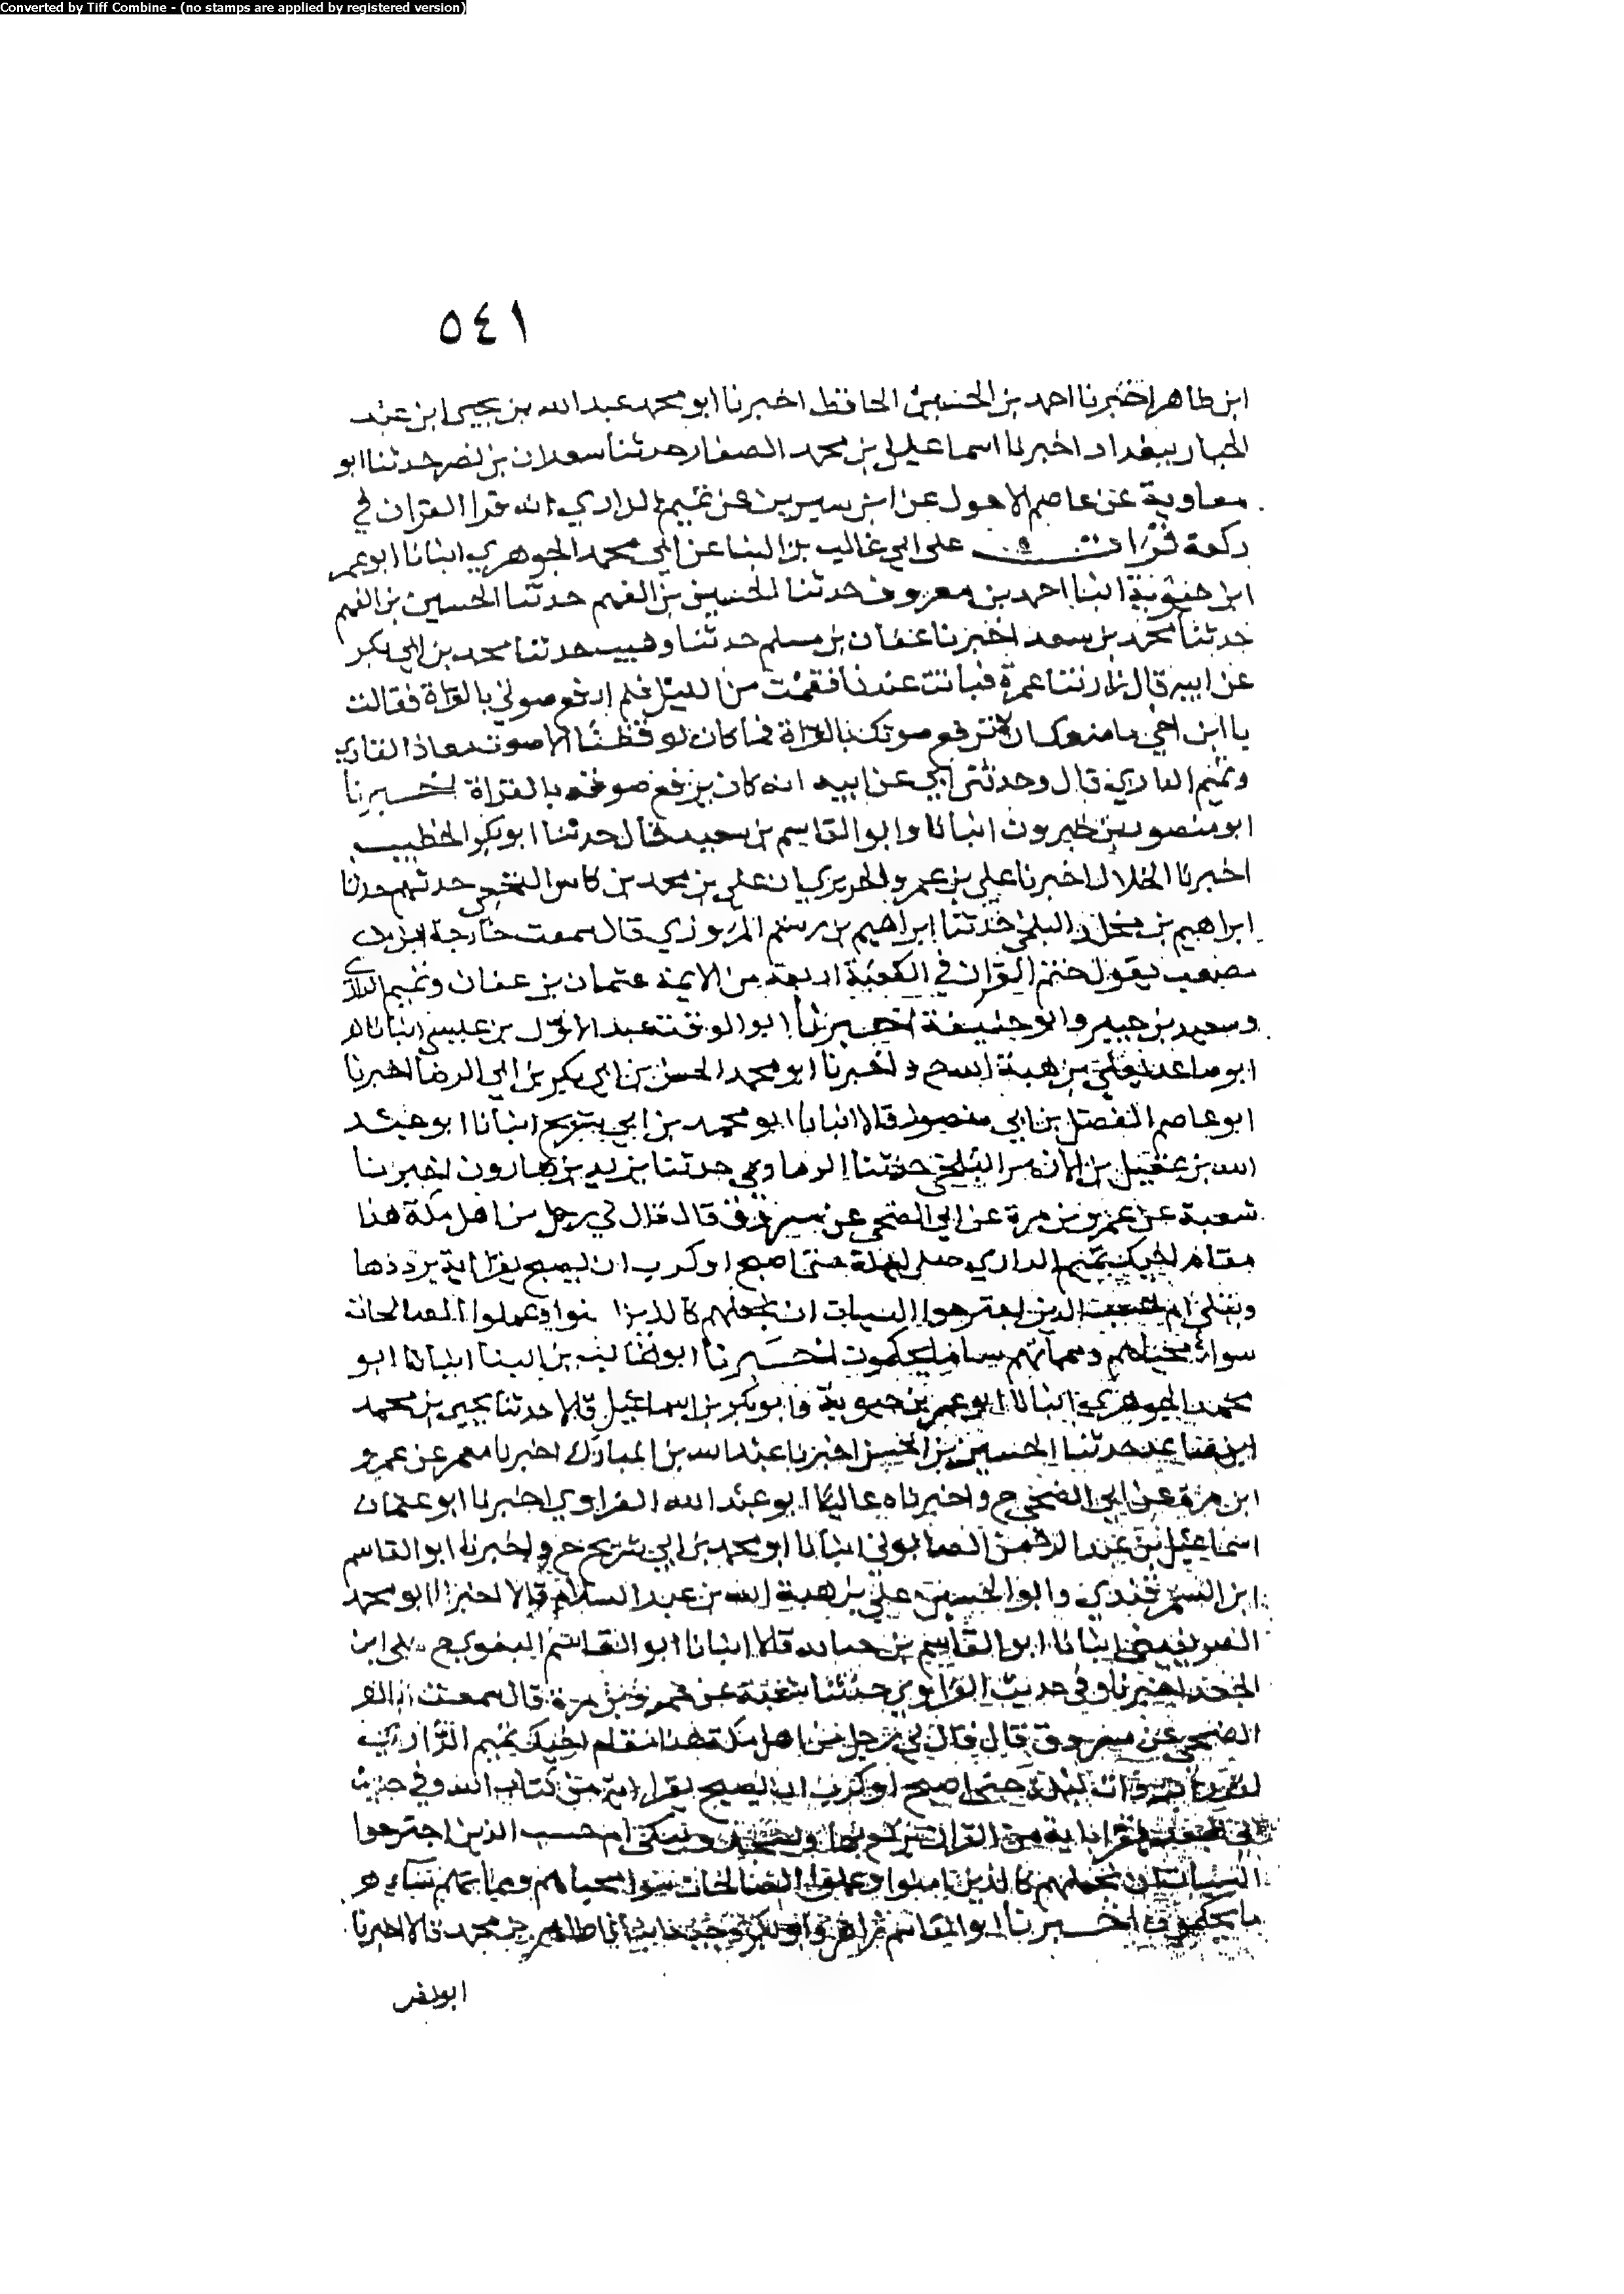 Converted by Tiff Combine - (no stamps are applied by registered version)
٥٤١
ابن طاهر اخبرنا احمد بن الحسين الحافظ اخبرنا ابو محمد عبد الله بن يحيى ابن عبد
الجبار ببغداد اخبرنا اسماعيل بن محمد الصفار حدثنا سعدان بن نصر حدثنا ابو
معاوية عن عاصم الاحول عن ابن سيرين عن تميم الداري انه قرا القران في
ركعة قرات على ابي غالب بن البنا عن ابي محمد الجوهري انبانا ابو عمر
ابن حيوية انبا احمد بن معروف حدثنا الحسين بن الفهم حدثنا الحسين بن الفهم
حدثنا محمد بن سعد اخبرنا عفان بن مسلم حدثنا وهيب حدثنا محمد بن ابي بكر
عن ابيه قال زارتنا عمرة فباتت عندنا فقمت من الليل فلم ارفع صوتي بالقراة فقالت
يا ابن اخي ما منعك ان ترفع صوتك بالقراة فما كان يوقظنا الا صوت معاذ القاري
وتميم الداري قال وحدثني ابي عن ابيه انه كان يرفع صوته بالقراة اخبرنا
ابو منصور بن خيرون انبانا وابو القاسم بن سعيد قال حدثنا ابو بكر الخطيب
اخبرنا الخلال اخبرنا علي بن عمرو الحريري ان علي بن محمد بن كاس النخعي حدثهم حدثنا
ابراهيم بن مخلد البلخي حدثنا ابراهيم بن رستم المروزي قال سمعت خارجة ابن
مصعب يقول ختم القران في الكعبة اربعة من الايمة عثمان بن عفان وتميم الداري
وسعيد بن جبير وابو حنيفة اخبرنا ابو الوقت عبد الاول بن عيسى انبانا
ابو صاعد يعلى بن هبة الله ح واخبرنا ابو محمد الحسن بن ابي بكر بن ابي الرضا اخبرنا
ابو عاصم الفضيل بن ابي منصور قالا انبانا ابو محمد بن ابي شريح انبانا ابو عبد
الله بن عقيل بن البلخي حدثنا الرمادي حدثنا يزيد بن هارون اخبرنا
شعبة عن عمرو بن مرة عن ابي الضحى عن مسروق قال قال لي رجل من اهل مكة هذا
مقام اخيك تميم الداري صلى ليلة حتى اصبح او كرب ان يصبح يقرا اية يرددها
ويبكي ام حسب الذين اجترحوا السيات ان نجعلهم كالذين امنوا وعملوا الصالحات
سواء محياهم ومماتهم سا ما يحكمون اخبرنا ابو غالب بن البنا انبانا ابو
محمد الجوهري انبانا ابو عمر بن حيوية وابو بكر بن اسماعيل قالا حدثنا يحيى بن محمد
ابن صاعد حدثنا الحسين بن الحسن اخبرنا عبد الله بن المبارك اخبرنا معمر عن عمرو
ابن مرة عن ابي الضحى ح واخبرناه عاليا ابو عبد الله الفراوي اخبرنا ابو عثمان
اسماعيل بن عبد الرحمن الصابوني انبانا ابو محمد بن ابي شريح ح واخبرنا ابو القاسم
ابن السمرقندي وابو الحسين علي بن هبة الله بن عبد السلام قالا اخبرنا ابو محمد
الصريفيني انبانا ابو القاسم بن حبابه قالا انبانا ابو القاسم البغوي علي ابن
الجعد اخبرنا وفي حديث الفراوي حدثنا شعبة عن عمرو بن مرة قال سمعت ابا
الضحى عن مسروق قال قال لي رجل من اهل مكة هذا مقام اخيك تميم الداري
ليلة حتى اصبح او كرب ان يصبح يقرا اية من كتاب الله وفي حديث
اية من القران ويبكي ام حسب الذين اجترحوا
السيات ان نجعلهم كالذين امنوا وعملوا الصالحات سوا محياهم ومماتهم ساء
ما يحكمون اخبرنا ابو القاسم زاهر وابو بكر وجيه ابنا طاهر بن محمد قالا اخبرنا
ابو نصر